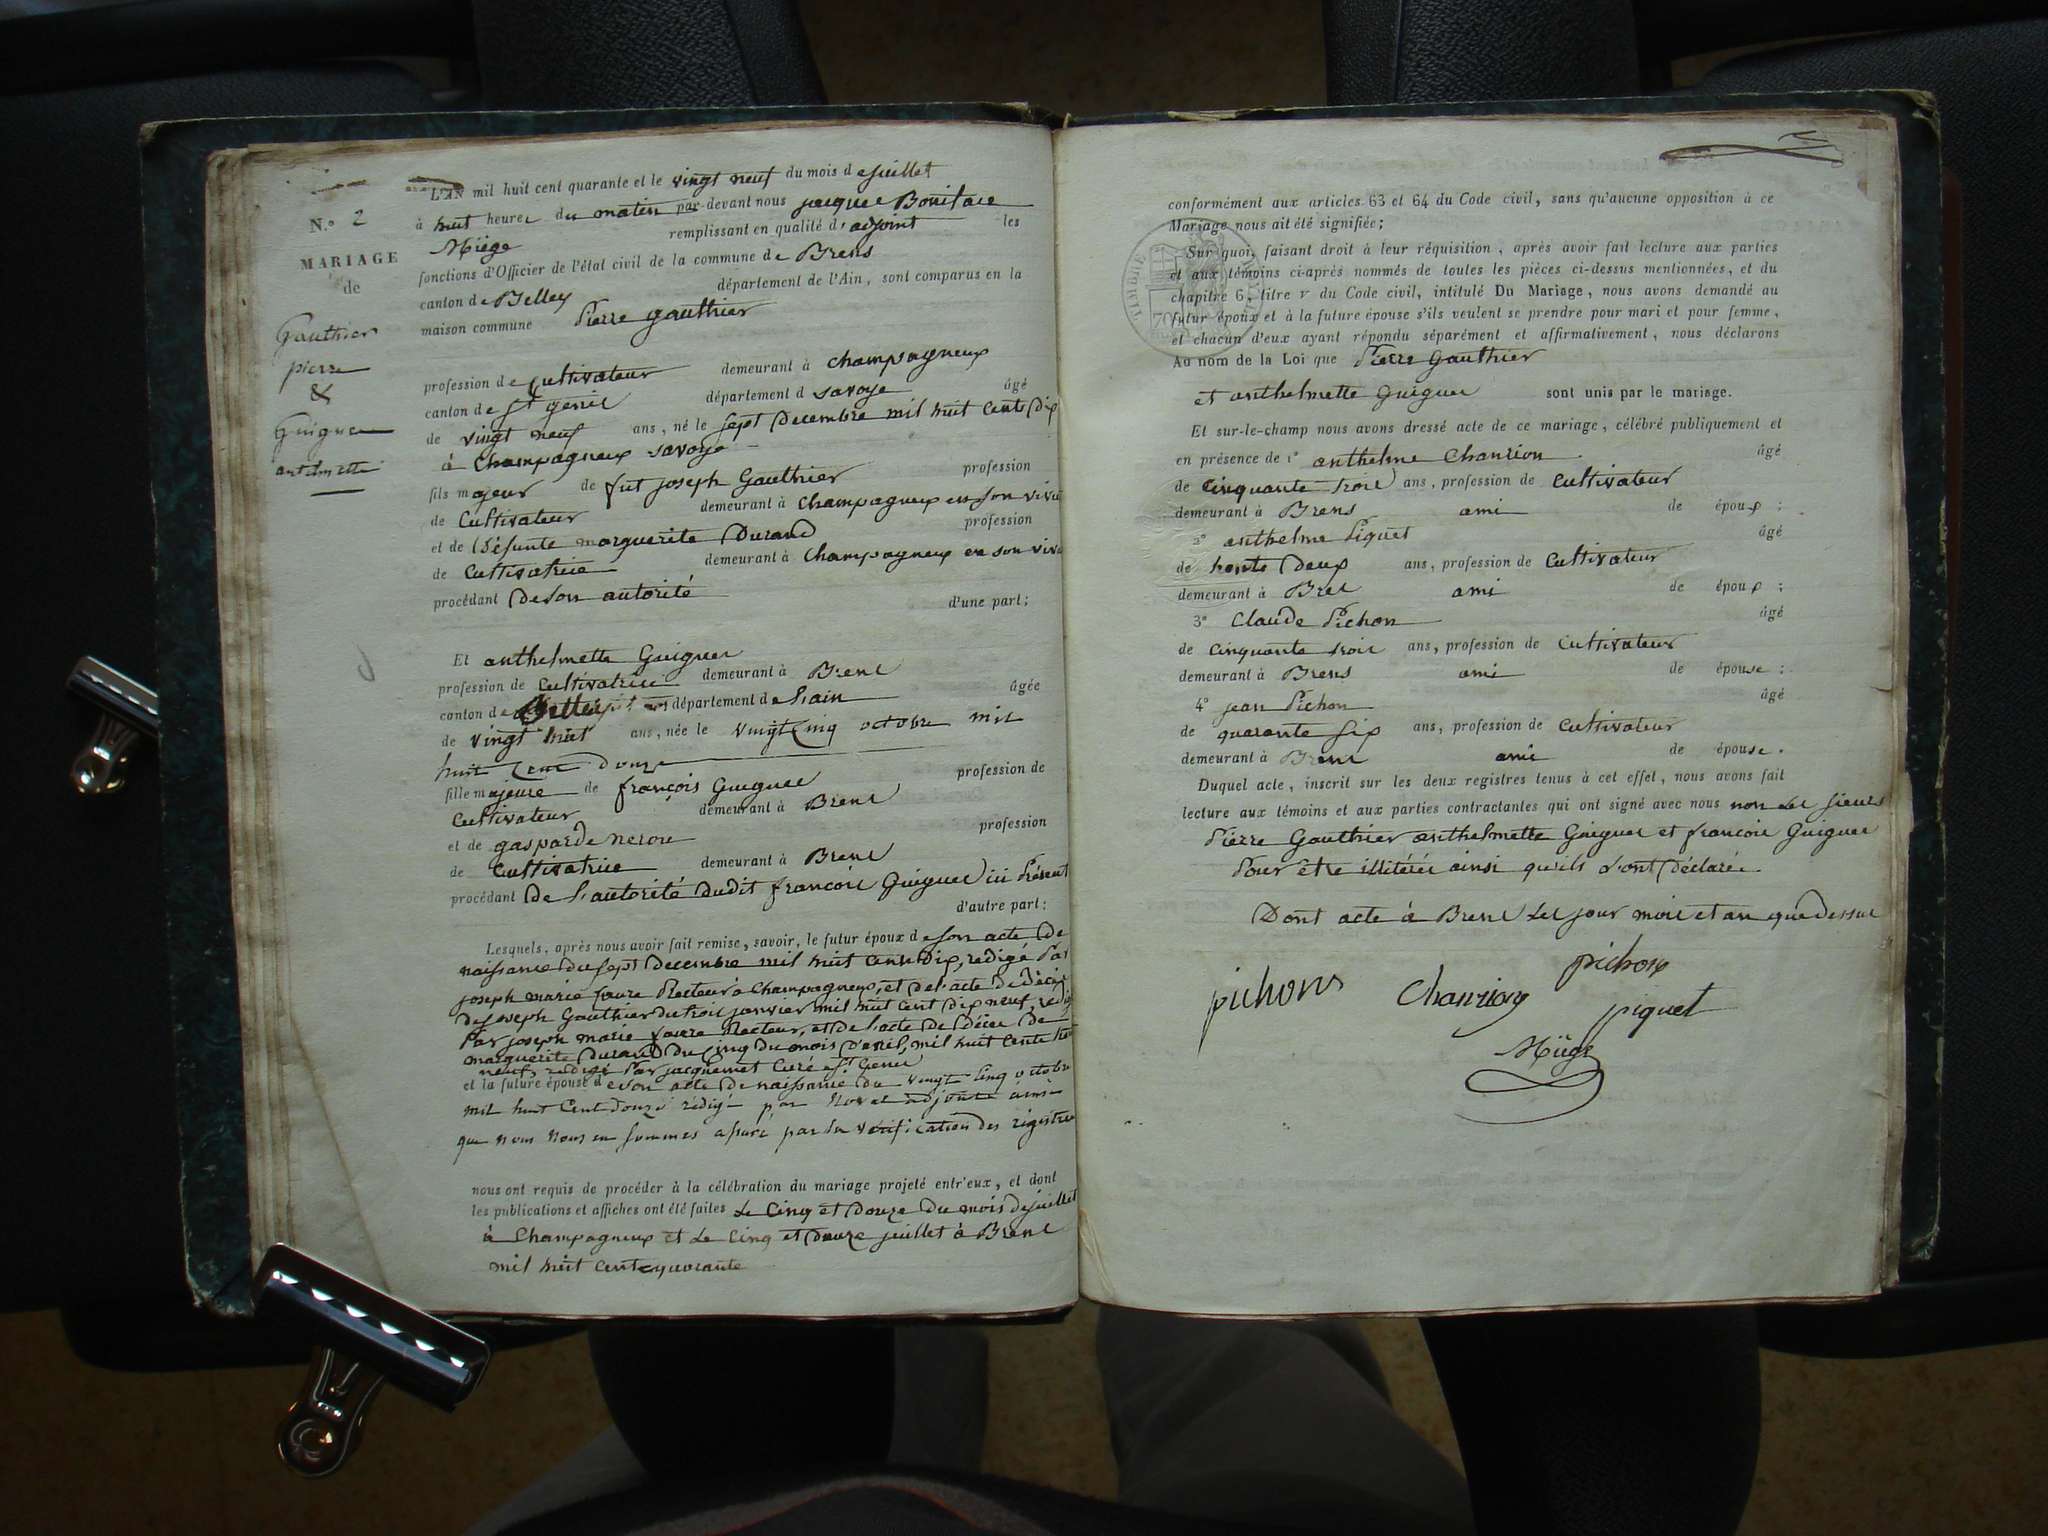 N.º 2
MARIAGE
de
Gauthier
pierre
&
Guigue
anthelmette
L'AN mil huit cent quarante et le vingt neuf du mois de juillet
à huit heures du matin par-devant nous jacques Boniface
Miège remplissant en qualité d'adjoint les
fonctions d'Officier de l'état civil de la commune de Brens
canton de Belley département de l'Ain, sont comparus en la
maison commune Pierre Gauthier
profession de Cultivateur demeurant à Champagneux
canton de St genis département d Savoye âgé
de vingt neuf ans, né le sept Decembre mil huit cent Dix
à Champagneux Savoye
fils majeur de fut joseph Gauthier profession
de Cultivateur demeurant à Champagneux en son viva
et de Défunte marguerite Durand profession
de Cultivatrice demeurant à Champagneux en son viva
procédant De son autorité d'une part;
Et anthelmette Guigue
profession de Cultivatrice demeurant à Brens
canton de Belley département de L'ain âgée
de vingt huit ans, née le vingt Cinq octobre mil
huit Cent douze
fille majeure de françois Guigue profession de
Cultivateur demeurant à Brens
et de gasparde nerou profession
de Cultivatrice demeurant à Brens
procédant De L'autorité Dudit françois Guigue ici Présent
d'autre part:
Lesquels, après nous avoir fait remise, savoir, le futur époux de son acte De
naissance Du sept Decembre mil huit Cent Dix, redigé Par
joseph marie faure Recteur a Champagneux, et De l'acte De Décès
De joseph Gauthier Du trois janvier mil huit Cent Dix neuf, redigé
Par joseph marie faure Recteur, et De L'acte De Décès De
marguerite Durand Du Cinq Du mois D'avril, mil huit Cent
neuf, redigé Par jacquemet Curé a St Genis
et la future épouse de son acte De naissance Du vingt Cinq octobre
mil huit Cent Douze rédigé par adjoint ainsi
que nous nous en sommes assuré par la vérification des registres
nous ont requis de procéder à la célébration du mariage projeté entr'eux, et dont
les publications et affiches ont été faites Le Cinq et Douze Du mois De juillet
à Champagneux et Le Cinq et Douze juillet à Brens
mil huit Cent quarante
conformément aux articles 63 et 64 du Code civil, sans qu'aucune opposition à ce
Mariage nous ait été signifiée;
Sur quoi, faisant droit à leur réquisition, après avoir fait lecture aux parties
et aux témoins ci-après nommés de toutes les pièces ci-dessus mentionnées, et du
chapitre 6, titre v du Code civil, intitulé Du Mariage, nous avons demandé au
futur époux et à la future épouse s'ils veulent se prendre pour mari et pour femme,
et chacun d'eux ayant répondu séparément et affirmativement, nous déclarons
Au nom de la Loi que Pierre Gauthier
et anthelmette Guigue sont unis par le mariage.
Et sur-le-champ nous avons dressé acte de ce mariage, célébré publiquement et
en présence de 1º anthelme Chanrion âgé
de Cinquante trois ans, profession de Cultivateur
demeurant à Brens ami de époux;
2º anthelme Piquet âgé
de trente Deux ans, profession de Cultivateur
demeurant à Bres ami de époux;
3º Claude Pichon âgé
de Cinquante trois ans, profession de Cultivateur
demeurant à Brens ami de épouse:
4º jean Pichon âgé
de quarante six ans, profession de Cultivateur
demeurant à Brens ami de épouse.
Duquel acte, inscrit sur les deux registres tenus à cet effet, nous avons fait
lecture aux témoins et aux parties contractantes qui ont signé avec nous non Les sieurs
Pierre Gauthier anthelmette Guigue et françois Guigue
Pour être illitérés ainsi qu'ils L'ont Déclaré.
Dont acte à Brens Les jour mois et an que dessus
pichons Chanrion pichon
piquet
Miège
TIMBRE